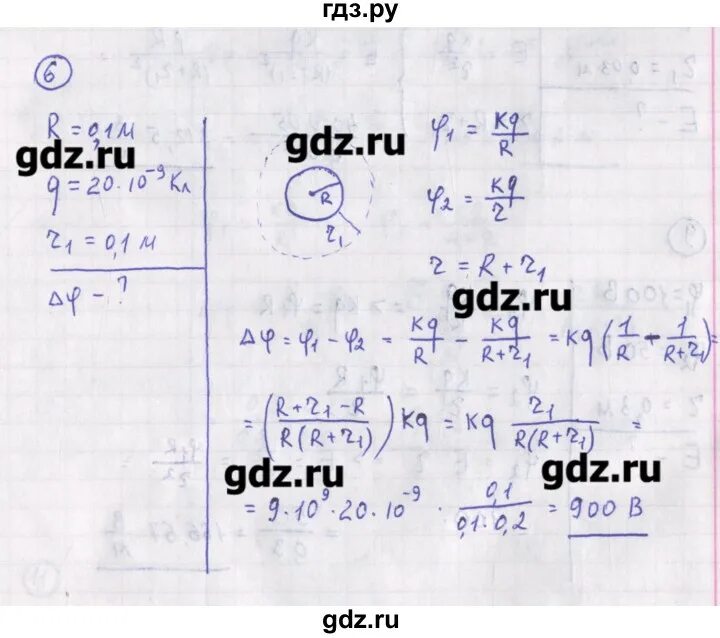 гдз.ру
6
R = 0,1 м
gdz.ru
q = 20·10⁻⁹ Кл
r₁ = 0,1 м
Δφ - ?
gdz.ru
R
r₁
φ₁ = kq/R
φ₂ = kq/r
r = R + r₁
gdz.ru
Δφ = φ₁ - φ₂ = kq/R - kq/(R+r₁) = kq(1/R - 1/(R+r₁)) =
= ((R+r₁-R)/(R(R+r₁))) kq = kq r₁/(R(R+r₁)) =
gdz.ru
gdz.ru
= 9·10⁹·20·10⁻⁹ · 0,1/(0,1·0,2) = 900 В
gdz.ru